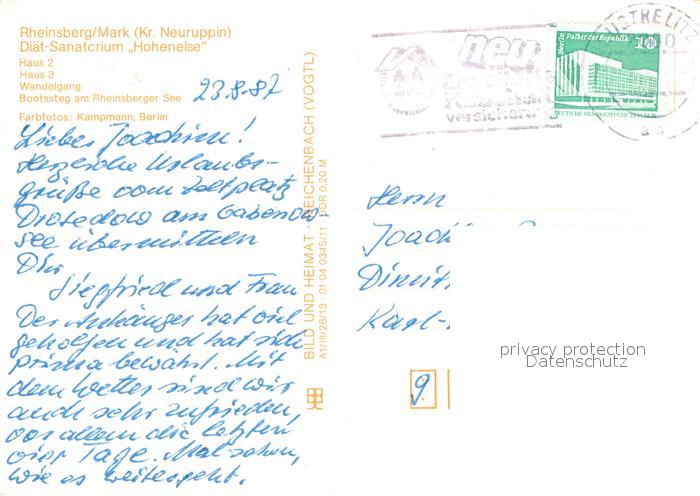 Rheinsberg/Mark (Kr. Neuruppin)
Diät-Sanatorium „Hohenelse"
Haus 2
Haus 3
Wandelgang
Bootssteg am Rheinsberger See
Farbfotos: Kampmann, Berlin
23.8.87
Lieber Joachim!
Herzliche Urlaubs-
grüße vom Zeltplatz
Drosedow am Gobenow-
see übermitteln
Dir
Siegfried und Frau
Der Anhänger hat viel
geholfen und hat sich
prima bewährt. Mit
dem Wetter sind wir
auch sehr zufrieden,
vor allem die letzten
vier Tage. Mal sehen,
wie es weitergeht.
BILD UND HEIMAT · REICHENBACH (VOGTL)
A1/III/26/13 · 01 04 0345/11 DDR 0,20 M
neu
versicherung
USTRELITZ
Berlin Palast der Republik
10
DEUTSCHE DEMOKRATISCHE REPUBLIK
Herrn
Joach
Dimit
Karl-
privacy protection
Datenschutz
9.